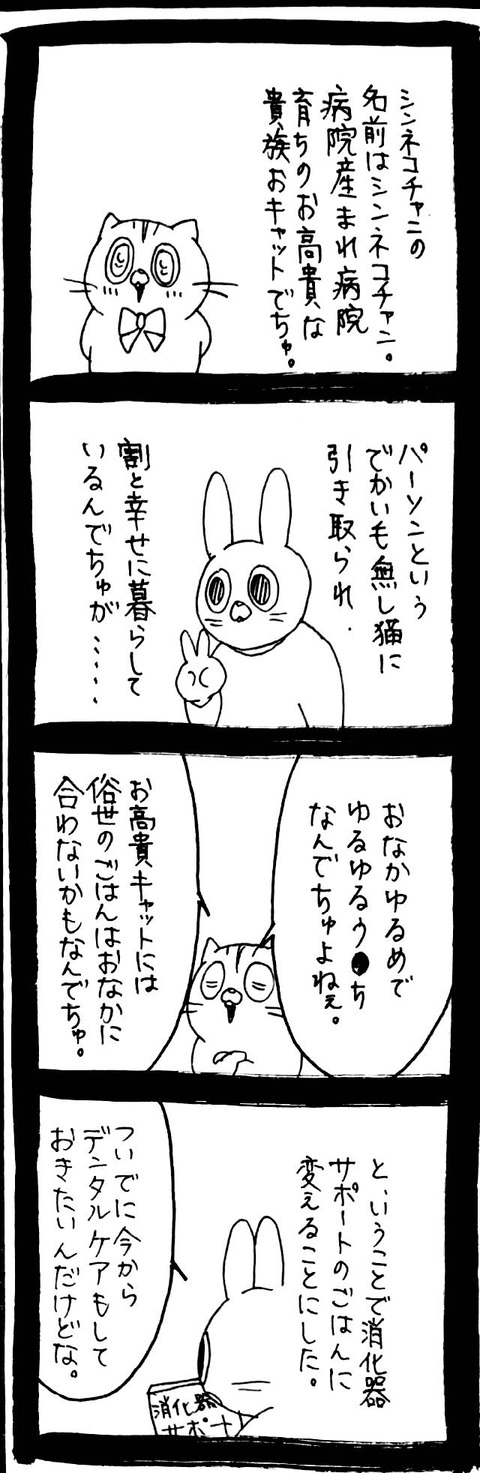 シンネコチャンの
名前はシンネコチャン。
病院産まれ病院
育ちのお高貴な
貴族おキャットでちゅ。
パーソンという
でかいも無し猫に
引き取られ.
割と幸せに暮らして
いるんでちゅが……
おなかゆるめで
ゆるゆるう●ち
なんでちゅよねぇ。
お高貴キャットには
俗世のごはんはおなかに
合わないかもなんでちゅ。
ということで消化器
サポートのごはんに
変えることにした。
消化器
サポート
ついでに今から
デンタルケアもして
おきたいんだけどな。